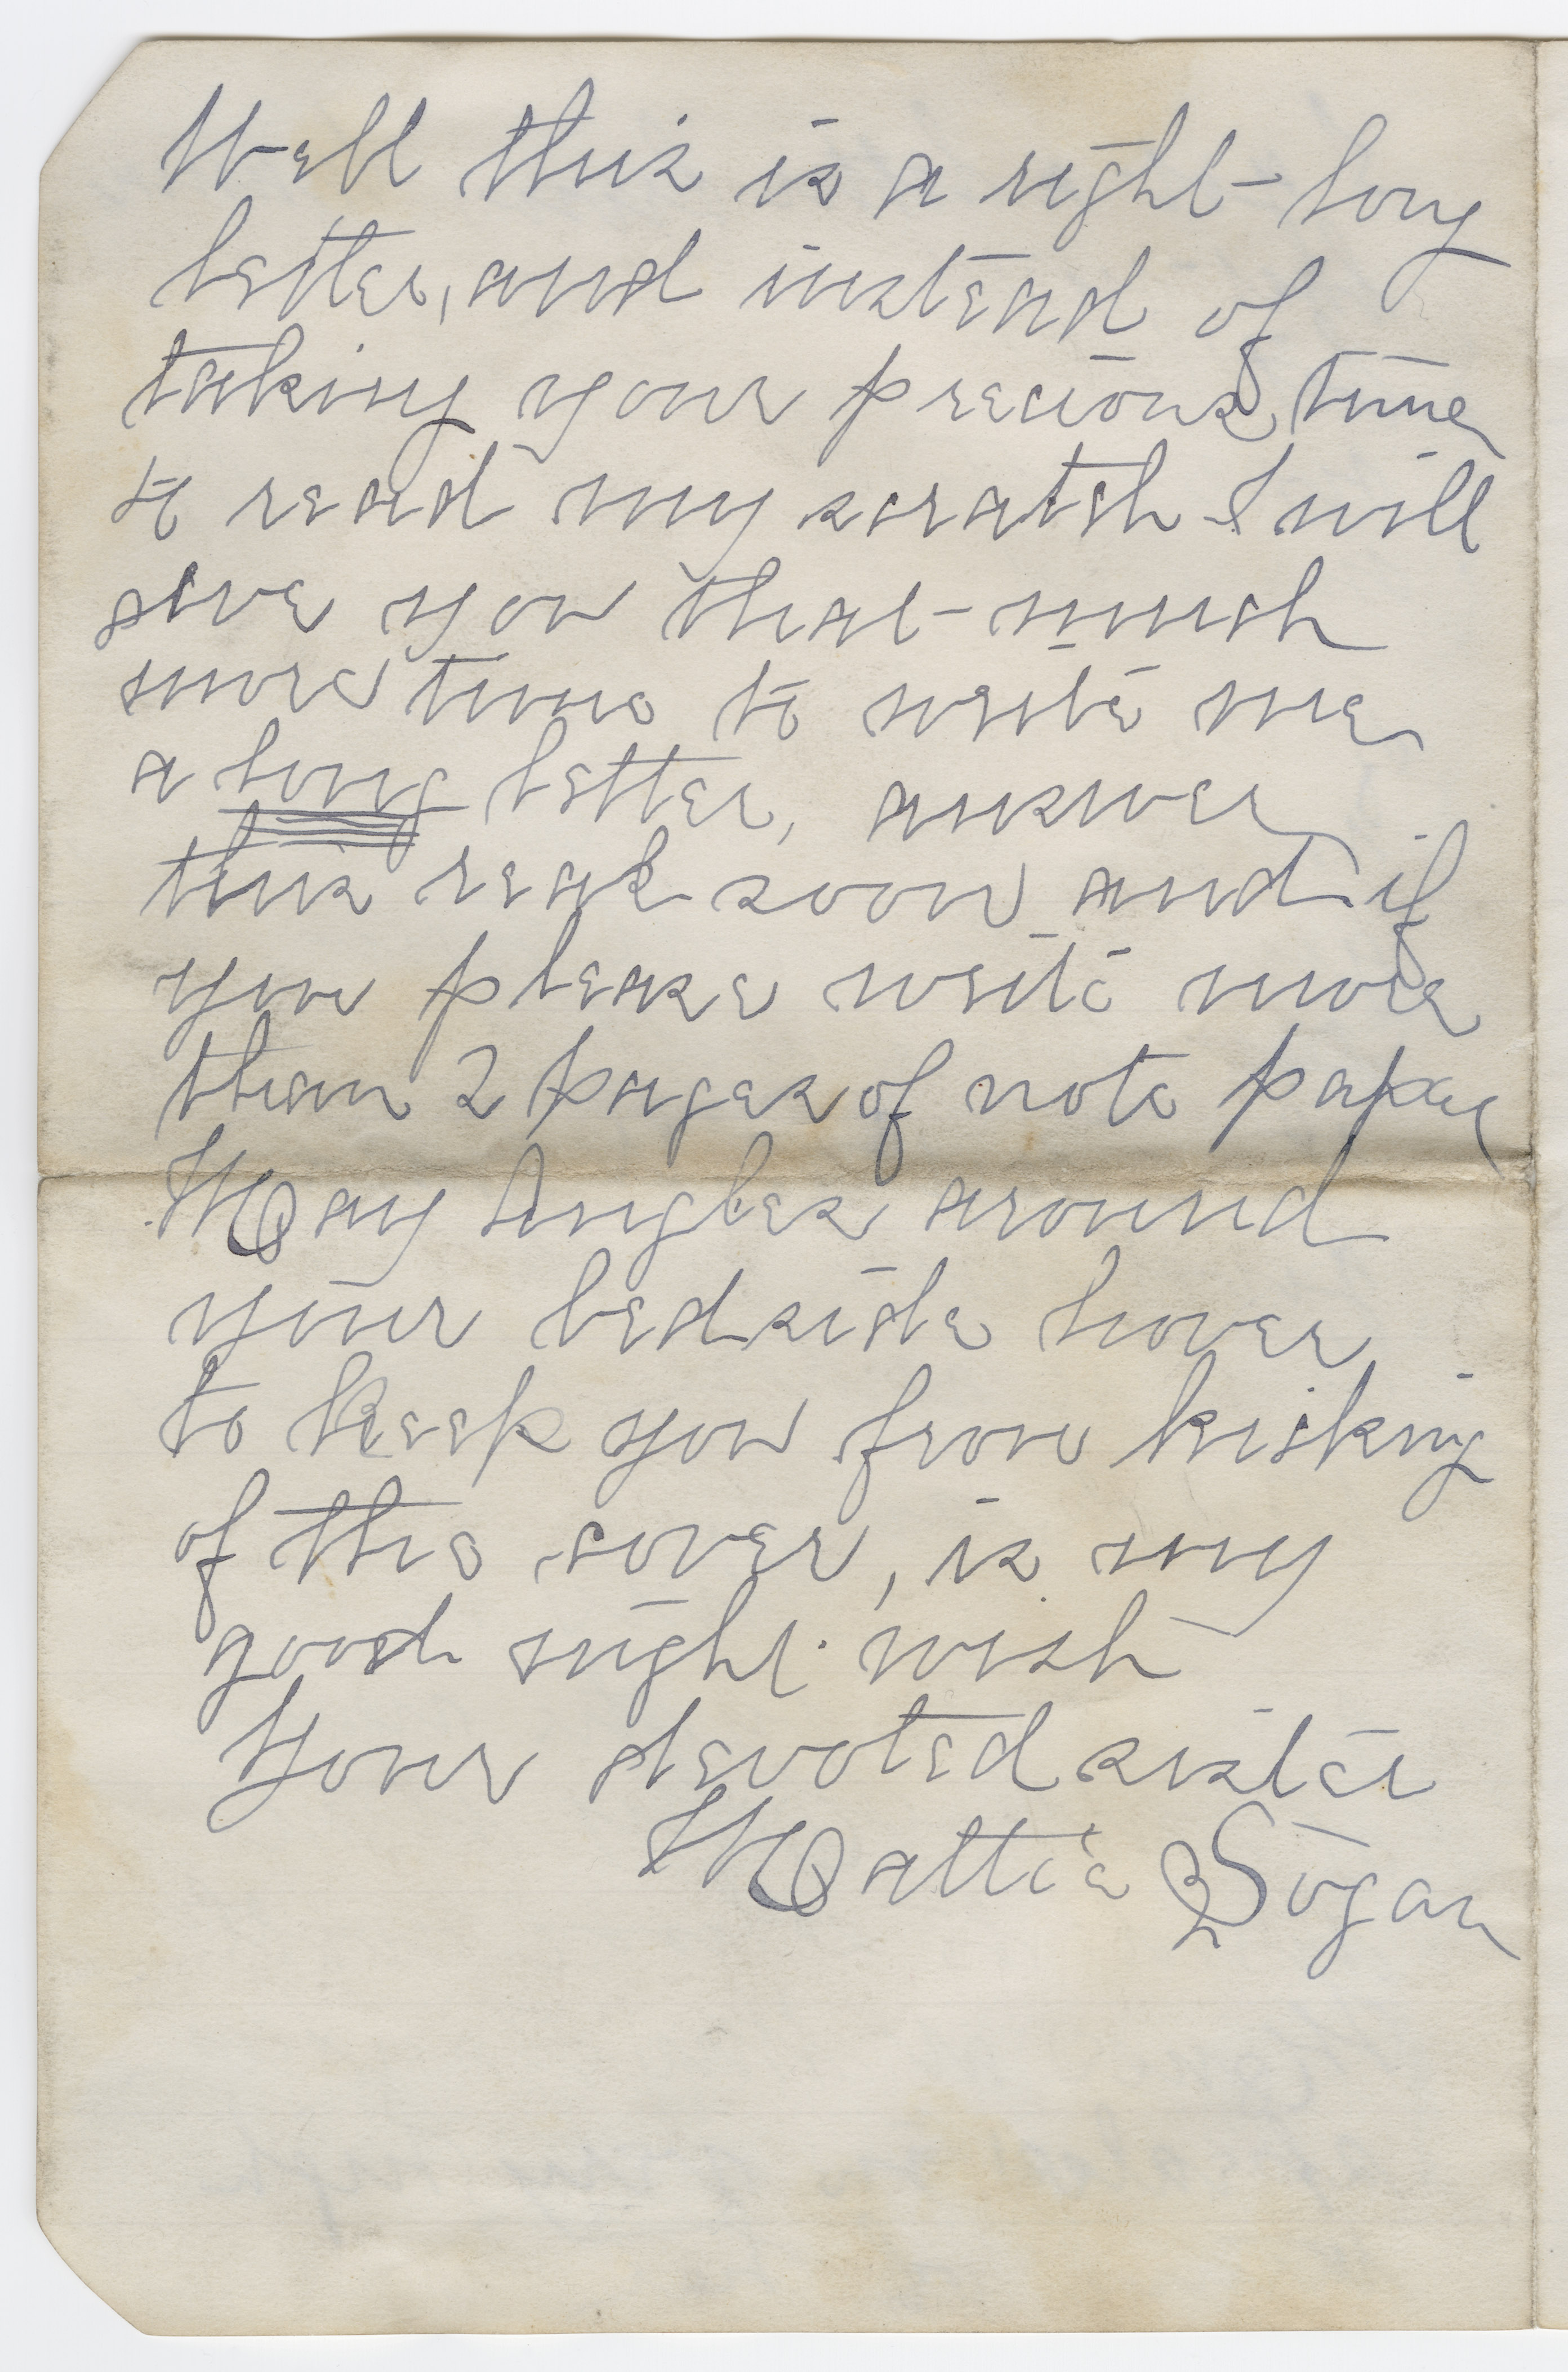 Well this is a right long
letter, and instead of
taking your precious time
to read my scratch I will
give you that much
more time to write me
a long letter, answer
this real soon and if
you please write more
than 2 pages of note paper
May Angles around
your bedside hover
to keep you from kicking
of the cover, is my
good night wish
Your devoted sister
Mattie Sogar